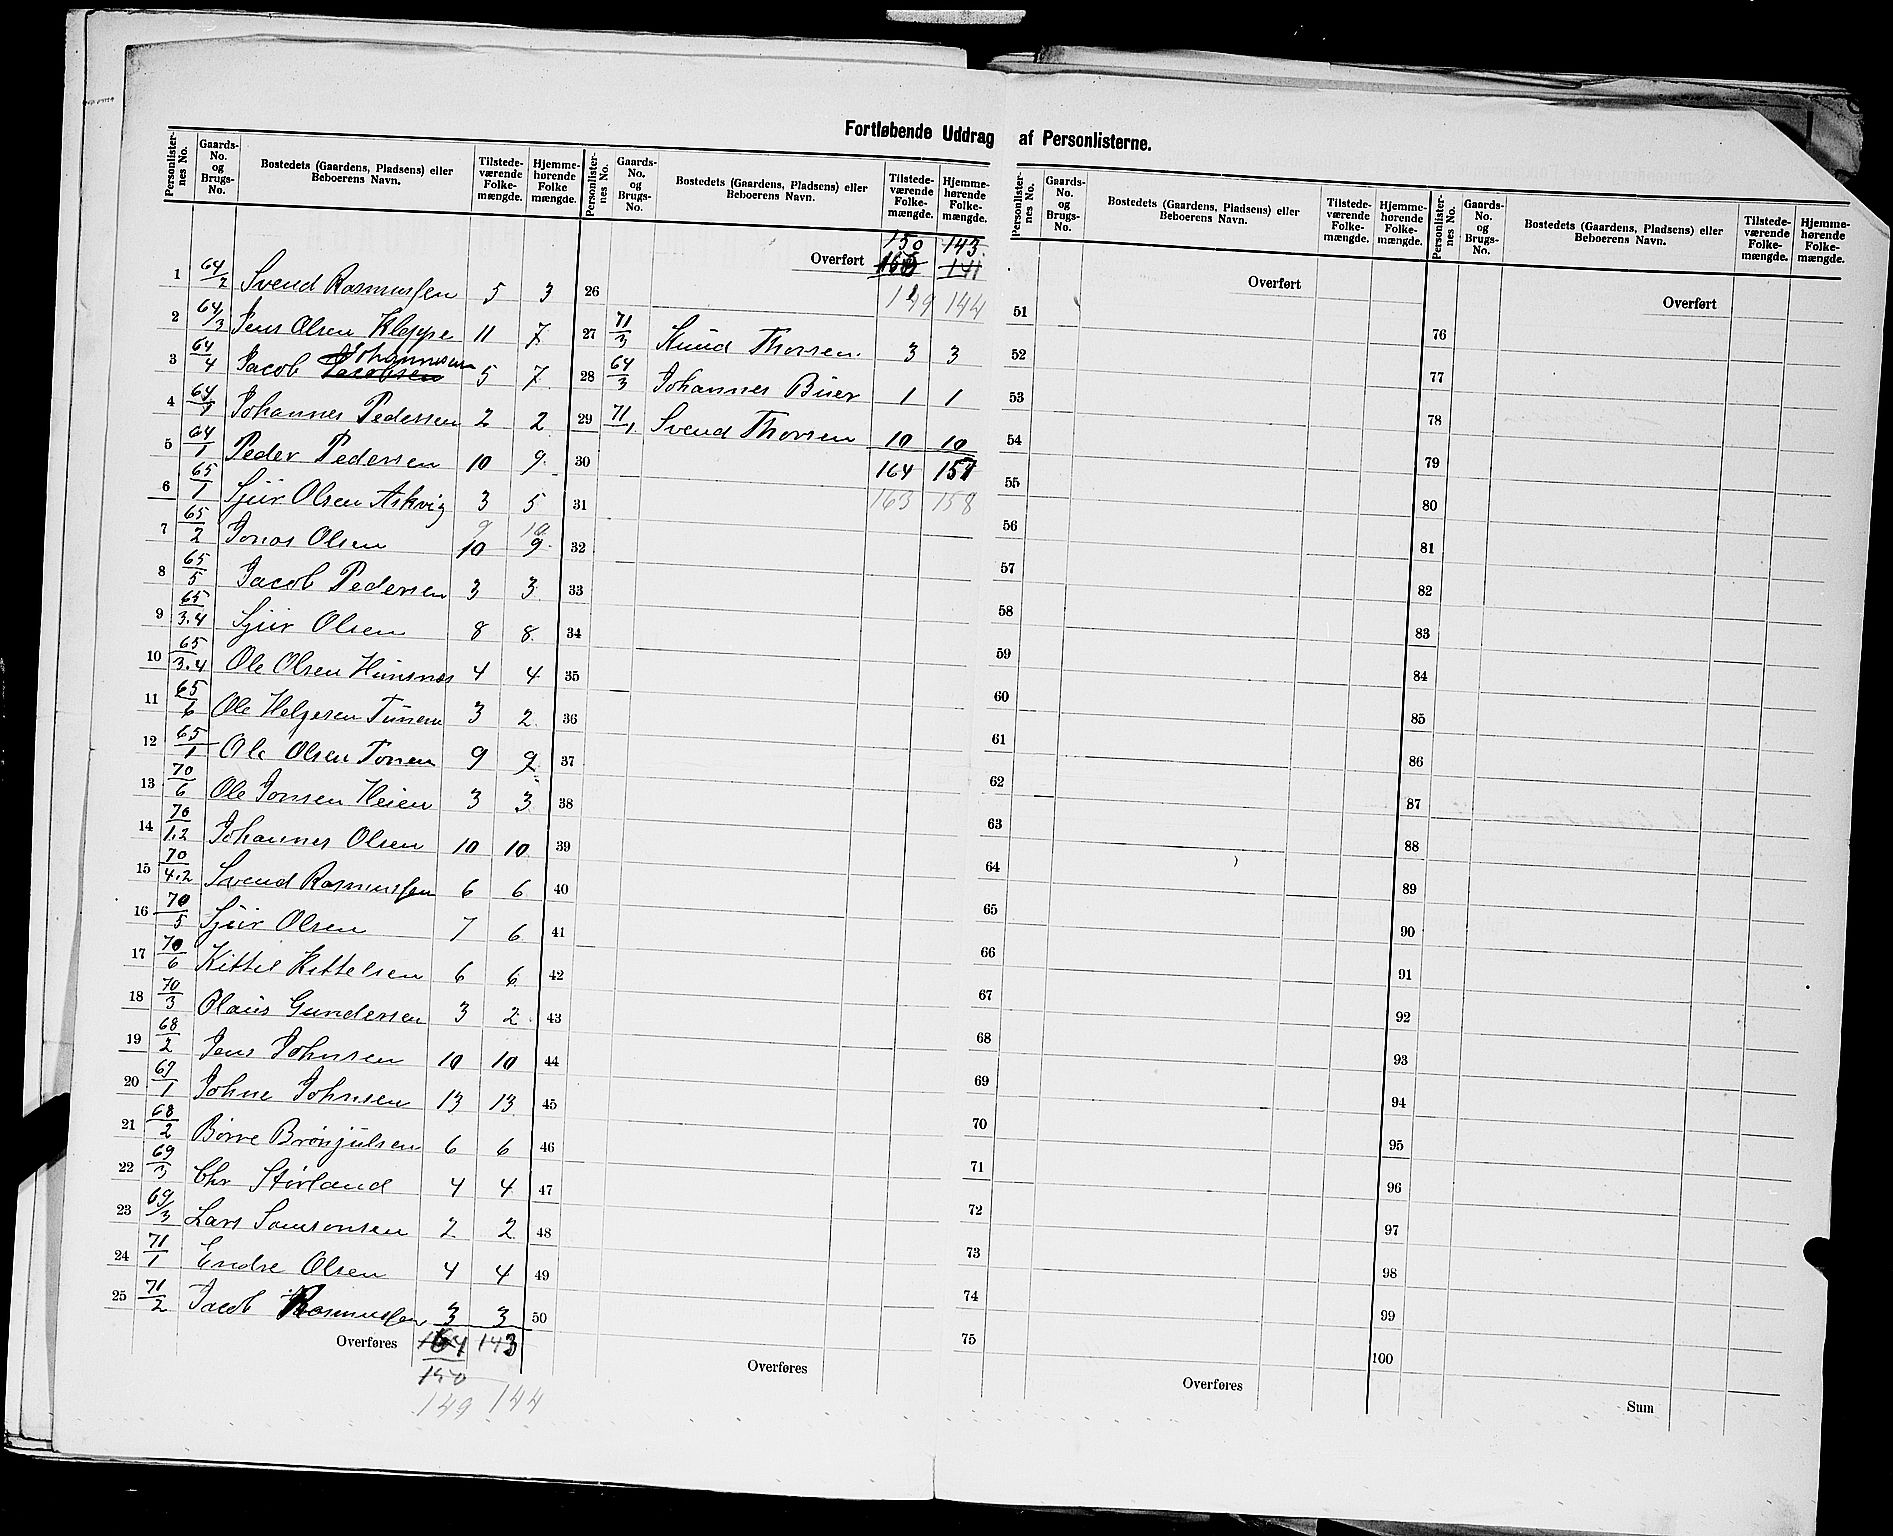 Fortløbende Uddrag af Personlisterne.
Personlisternes No. | Gaards-No. og Brugs-No. | Bostedets (Gaardens, Pladsens) eller Beboerens Navn. | Tilstedeværende Folkemængde. | Hjemmehørende Folkemængde.
1 64/2 Svend Rasmussen 5 3
2 64/3 Jens Olsen Kleppe 11 7
3 64/4 Jacob Jacobsen Johannesen 5 7
4 64/1 Johannes Pedersen 2 2
5 64/1 Peder Pedersen 10 9
6 65/1 Sjur Olsen Askvig 3 5
7 65/2 Jonas Olsen 10 9 9 10
8 65/5 Jacob Pedersen 3 3
9 65/3.4 Sjur Olsen 8 8
10 65/3.4 Ole Olsen Hunsnes 4 4
11 65/6 Ole Helgesen Tunem 3 2
12 65/1 Ole Olsen Tonem 9 9
13 70/6 Ole Jonsen Heien 3 3
14 70/1.2 Johannes Olsen 10 10
15 70/4.2 Svend Rasmussen 6 6
16 70/5 Sjur Olsen 7 6
17 70/6 Kittil Kittelsen 6 6
18 70/3 Olaus Gundersen 3 2
19 68/2 Jens Johnsen 10 10
20 69/1 Johne Johnsen 13 13
21 68/2 Børre Brönjulsen 6 6
22 69/3 Chr Störland 4 4
23 69/3 Lars Samsonsen 2 2
24 71/1 Endre Olsen 4 4
25 71/2 Jacob Rasmussen 3 3
Overføres 143
150
149 144
Personlisternes No. | Gaards-No. og Brugs-No. | Bostedets (Gaardens, Pladsens) eller Beboerens Navn. | Tilstedeværende Folkemængde. | Hjemmehørende Folkemængde.
150 143
Overført 141
149 144
26
27 71/3 Knud Thorsen 3 3
28 64/3 Johannes Buer 1 1
29 71/1 Svend Thorsen 10 10
30 164 157
31 163 158
32
33
34
35
36
37
38
39
40
41
42
43
44
45
46
47
48
49
50
Overføres
Personlisternes No. | Gaards-No. og Brugs-No. | Bostedets (Gaardens, Pladsens) eller Beboerens Navn. | Tilstedeværende Folkemængde. | Hjemmehørende Folkemængde.
Overført
51
52
53
54
55
56
57
58
59
60
61
62
63
64
65
66
67
68
69
70
71
72
73
74
75
Overføres
Personlisternes No. | Gaards-No. og Brugs-No. | Bostedets (Gaardens, Pladsens) eller Beboerens Navn. | Tilstedeværende Folkemængde. | Hjemmehørende Folkemængde.
Overført
76
77
78
79
80
81
82
83
84
85
86
87
88
89
90
91
92
93
94
95
96
97
98
99
100
Sum